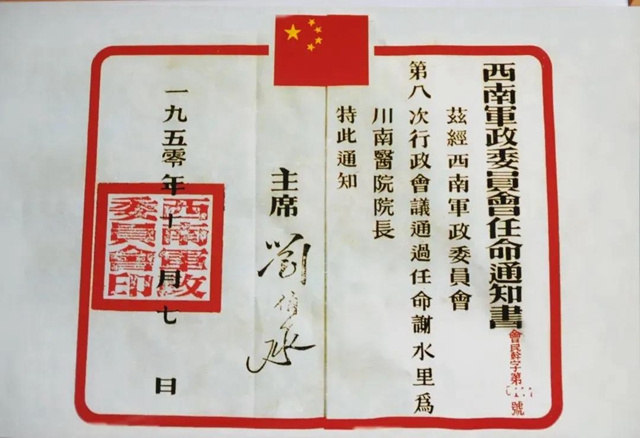 西南軍政委員會任命通知書
會民幹字第 號
茲經西南軍政委員會
第八次行政會議通過任命謝水里爲
川南醫院院長
特此通知
主席 劉伯承
一九五零年十 月七 日
西南軍政
委員會印